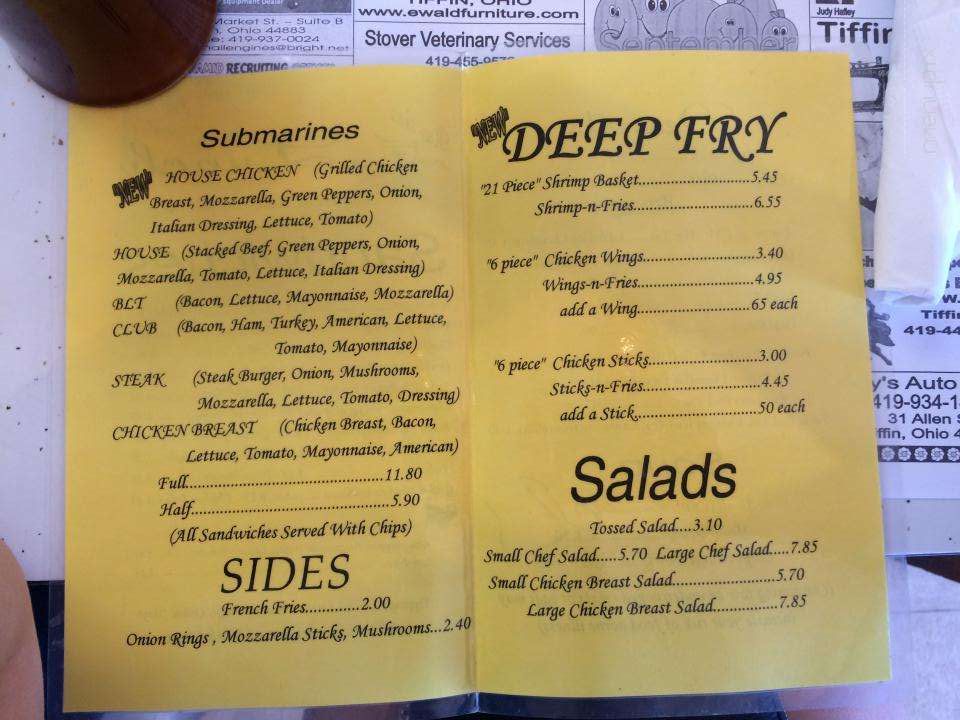 Equipment Dealer
Market St. - Suite B
Ohio 44883
419-937-0024
allengines@bright.net
RECRUITING
TIFFIN, OHIO
www.ewaldfurniture.com
Stover Veterinary Services
September
Judy Hafley
Tiffin
"NEW"
Submarines
HOUSE CHICKEN (Grilled Chicken
Breast, Mozzarella, Green Peppers, Onion,
Italian Dressing, Lettuce, Tomato)
HOUSE (Stacked Beef, Green Peppers, Onion,
Mozzarella, Tomato, Lettuce, Italian Dressing)
BLT (Bacon, Lettuce, Mayonnaise, Mozzarella)
CLUB (Bacon, Ham, Turkey, American, Lettuce,
Tomato, Mayonnaise)
STEAK (Steak Burger, Onion, Mushrooms,
Mozzarella, Lettuce, Tomato, Dressing)
CHICKEN BREAST (Chicken Breast, Bacon,
Lettuce, Tomato, Mayonnaise, American)
Full.......................................11.80
Half.......................................5.90
(All Sandwiches Served With Chips)
SIDES
French Fries............2.00
Onion Rings , Mozzarella Sticks, Mushrooms...2.40
"NEW"
DEEP FRY
"21 Piece" Shrimp Basket..........................5.45
Shrimp-n-Fries.........................6.55
"6 piece" Chicken Wings..........................3.40
Wings-n-Fries..........................4.95
add a Wing.........................65 each
"6 piece" Chicken Sticks.........................3.00
Sticks-n-Fries..........................4.45
add a Stick...........................50 each
Salads
Tossed Salad....3.10
Small Chef Salad.....5.70 Large Chef Salad.....7.85
Small Chicken Breast Salad......................5.70
Large Chicken Breast Salad..............7.85
Tiffin
419-44
y's Auto
419-934-1
31 Allen S
ffin, Ohio 4